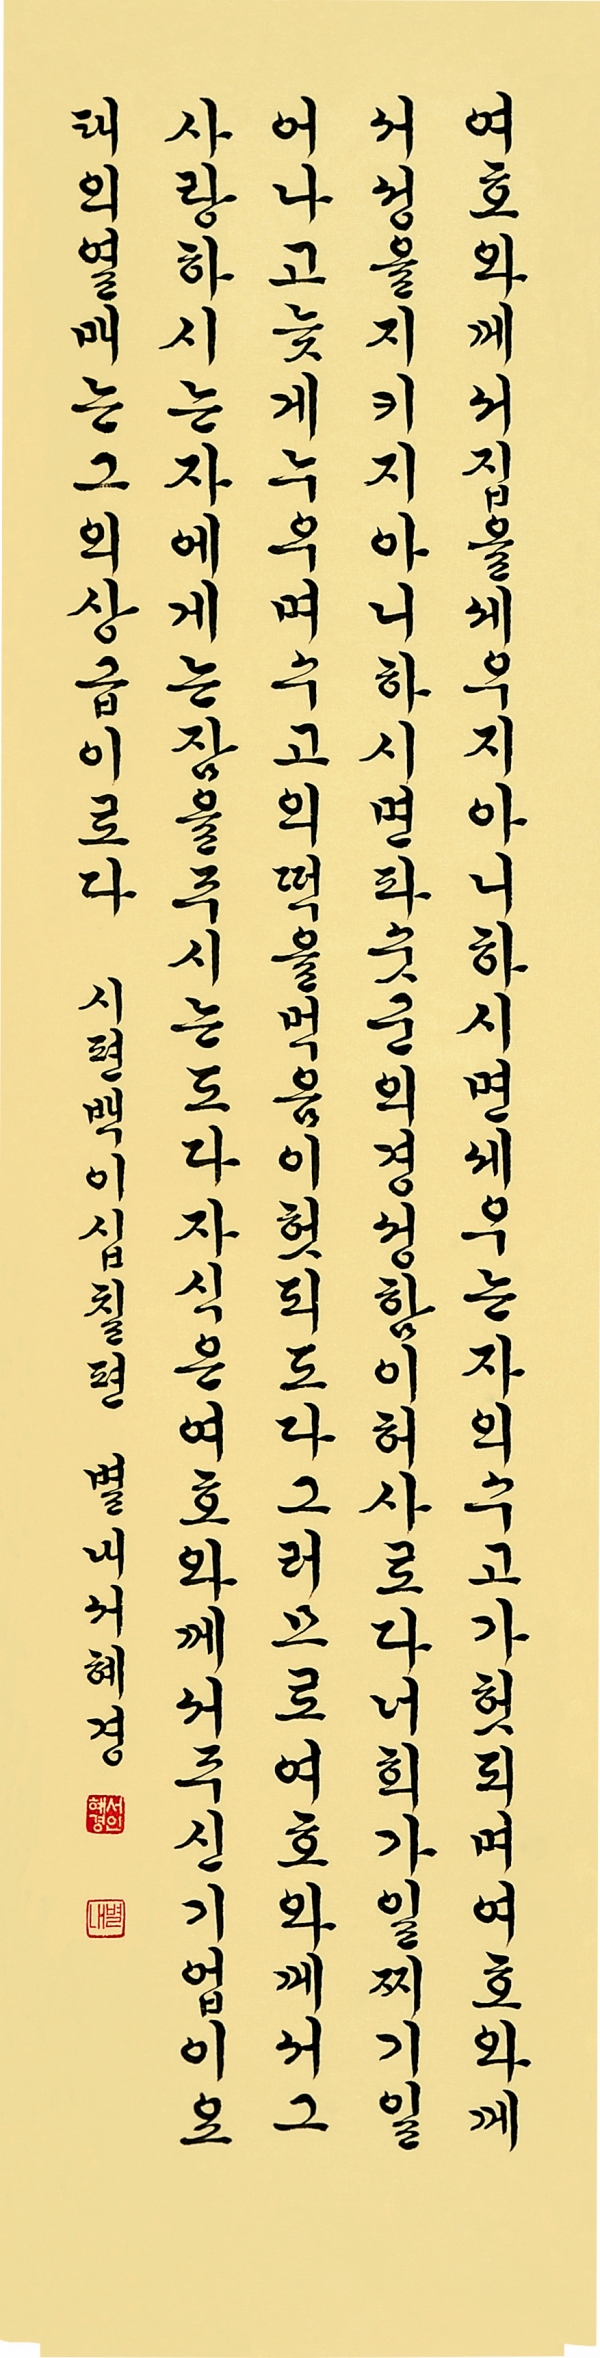 여호와께서집을세우지아니하시면세우는자의수고가헛되며여호와께
서성을지키지아니하시면파숫군의경성함이허사로다너희가일찌기일
어나고늦게누우며수고의떡을먹음이헛되도다그러므로여호와께서그
사랑하시는자에게는잠을주시는도다자식은여호와께서주신기업이오
태의열매는그의상급이로다 시편백이십칠편 별내서혜경
서인혜경
별내